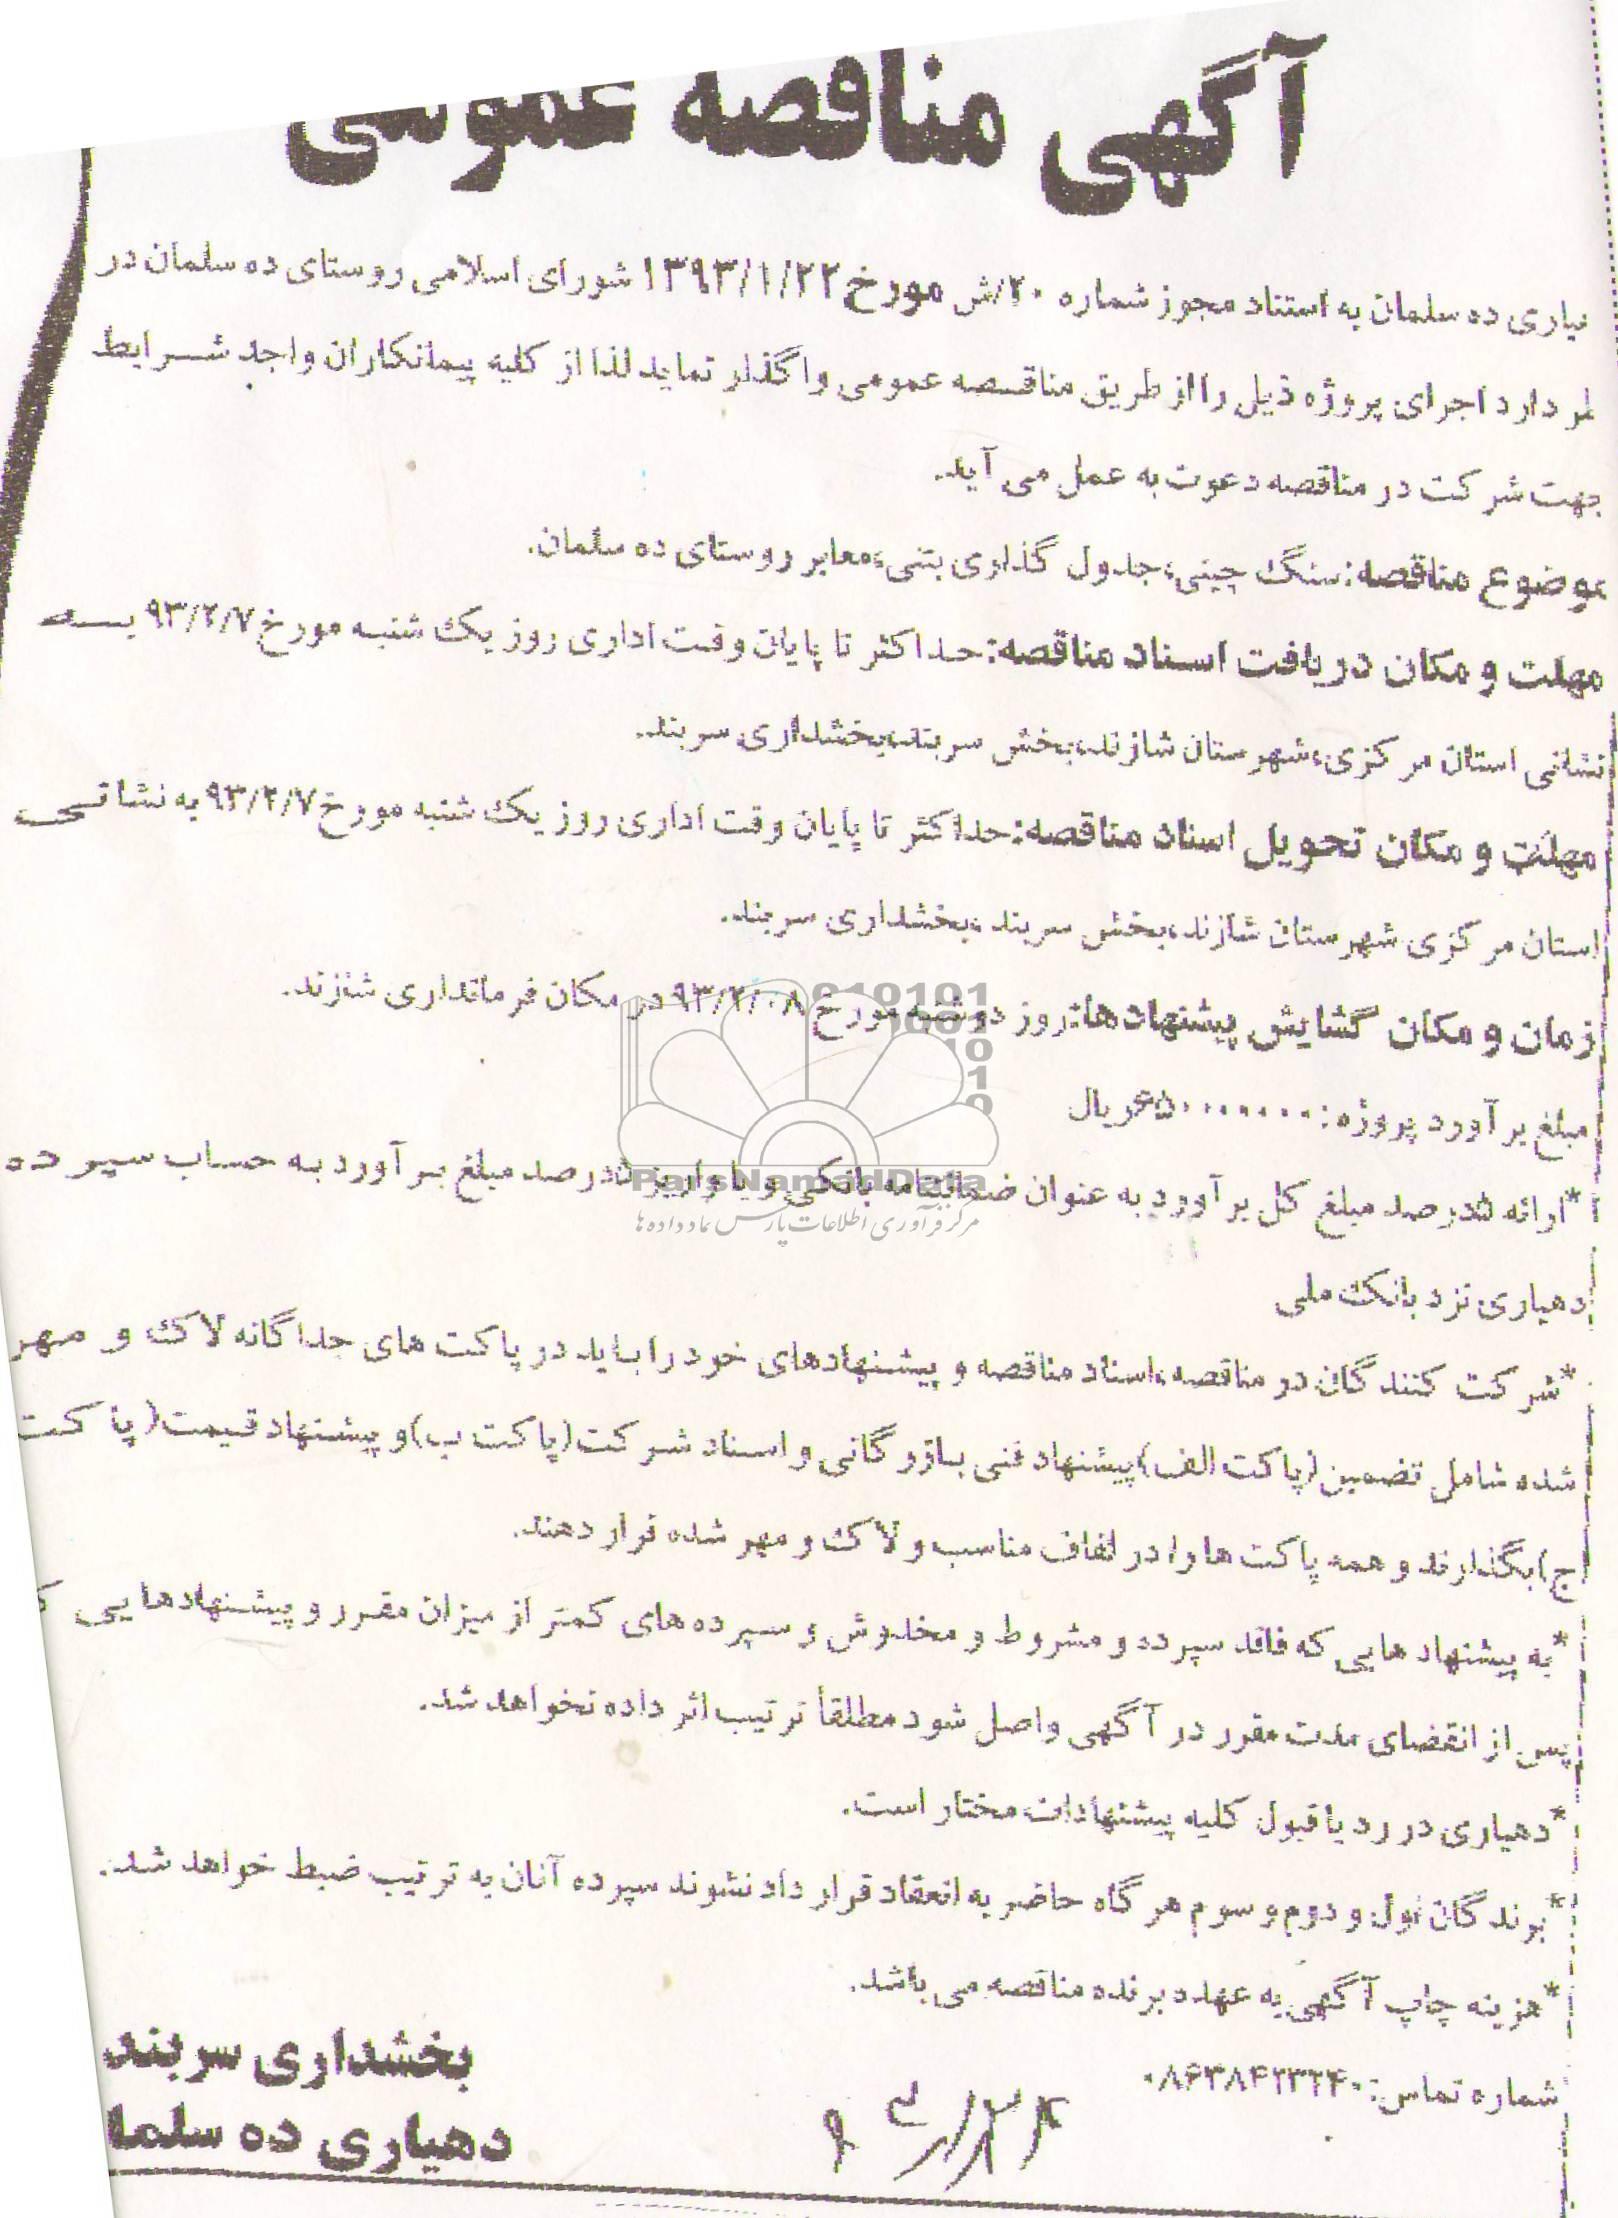 آگهی مناقصه عمومی
یاری ده سلمان به استناد مجوز شماره ۲۰/ش مورخ ۱۳۹۳/۱/۲۲ شورای اسلامی روستای ده سلمان در
دارد اجرای پروژه ذیل را از طریق مناقصه عمومی واگذار نماید لذا از کلیه پیمانکاران واجد شرایط
جهت شرکت در مناقصه دعوت به عمل می آید.
موضوع مناقصه: سنگ چینی، جدول گذاری بتنی، معابر روستای ده سلمان.
مهلت و مکان دریافت اسناد مناقصه: حداکثر تا پایان وقت اداری روز یک شنبه مورخ ۹۳/۲/۷ به
نشانی استان مرکزی، شهرستان شازند، بخش سربند، بخشداری سربند.
مهلت و مکان تحویل اسناد مناقصه: حداکثر تا پایان وقت اداری روز یک شنبه مورخ ۹۳/۲/۷ به نشانی
استان مرکزی شهرستان شازند، بخش سربند، بخشداری سربند.
زمان و مکان گشایش پیشنهادها: روز دوشنبه مورخ ۹۳/۲/۰۸ در مکان فرمانداری شازند.
مبلغ برآورد پروژه: ریال
*ارائه ۵درصد مبلغ کل برآورد به عنوان ضمانتنامه بانکی و یا واریز ۵درصد مبلغ برآورد به حساب سپرده
ParsNamadData
مرکز فرآوری اطلاعات پارس نماد داده ها
دهیاری نزد بانک ملی
*شرکت کنندگان در مناقصه، اسناد مناقصه و پیشنهادهای خود را باید در پاکت های جداگانه لاک و مهر
شده شامل تضمین (پاکت الف) پیشنهاد فنی بازرگانی و اسناد شرکت (پاکت ب) و پیشنهاد قیمت (پاکت
ج) بگذارند و همه پاکت ها را در لفاف مناسب و لاک و مهر شده قرار دهند.
*به پیشنهاد هایی که فاقد سپرده و مشروط و مخدوش و سپرده های کمتر از میزان مقرر و پیشنهادهایی
پس از انقضای مدت مقرر در آگهی واصل شود مطلقاً ترتیب اثر داده نخواهد شد.
*دهیاری در رد یا قبول کلیه پیشنهادات مختار است.
*برندگان اول و دوم و سوم هرگاه حاضر به انعقاد قرار داد نشوند سپرده آنان به ترتیب ضبط خواهد شد.
*هزینه چاپ آگهی به عهده برنده مناقصه می باشد.
شماره تماس: ۰۸۶۳۸۴۲۳۲۴۰
بخشداری سربند
دهیاری ده سلما